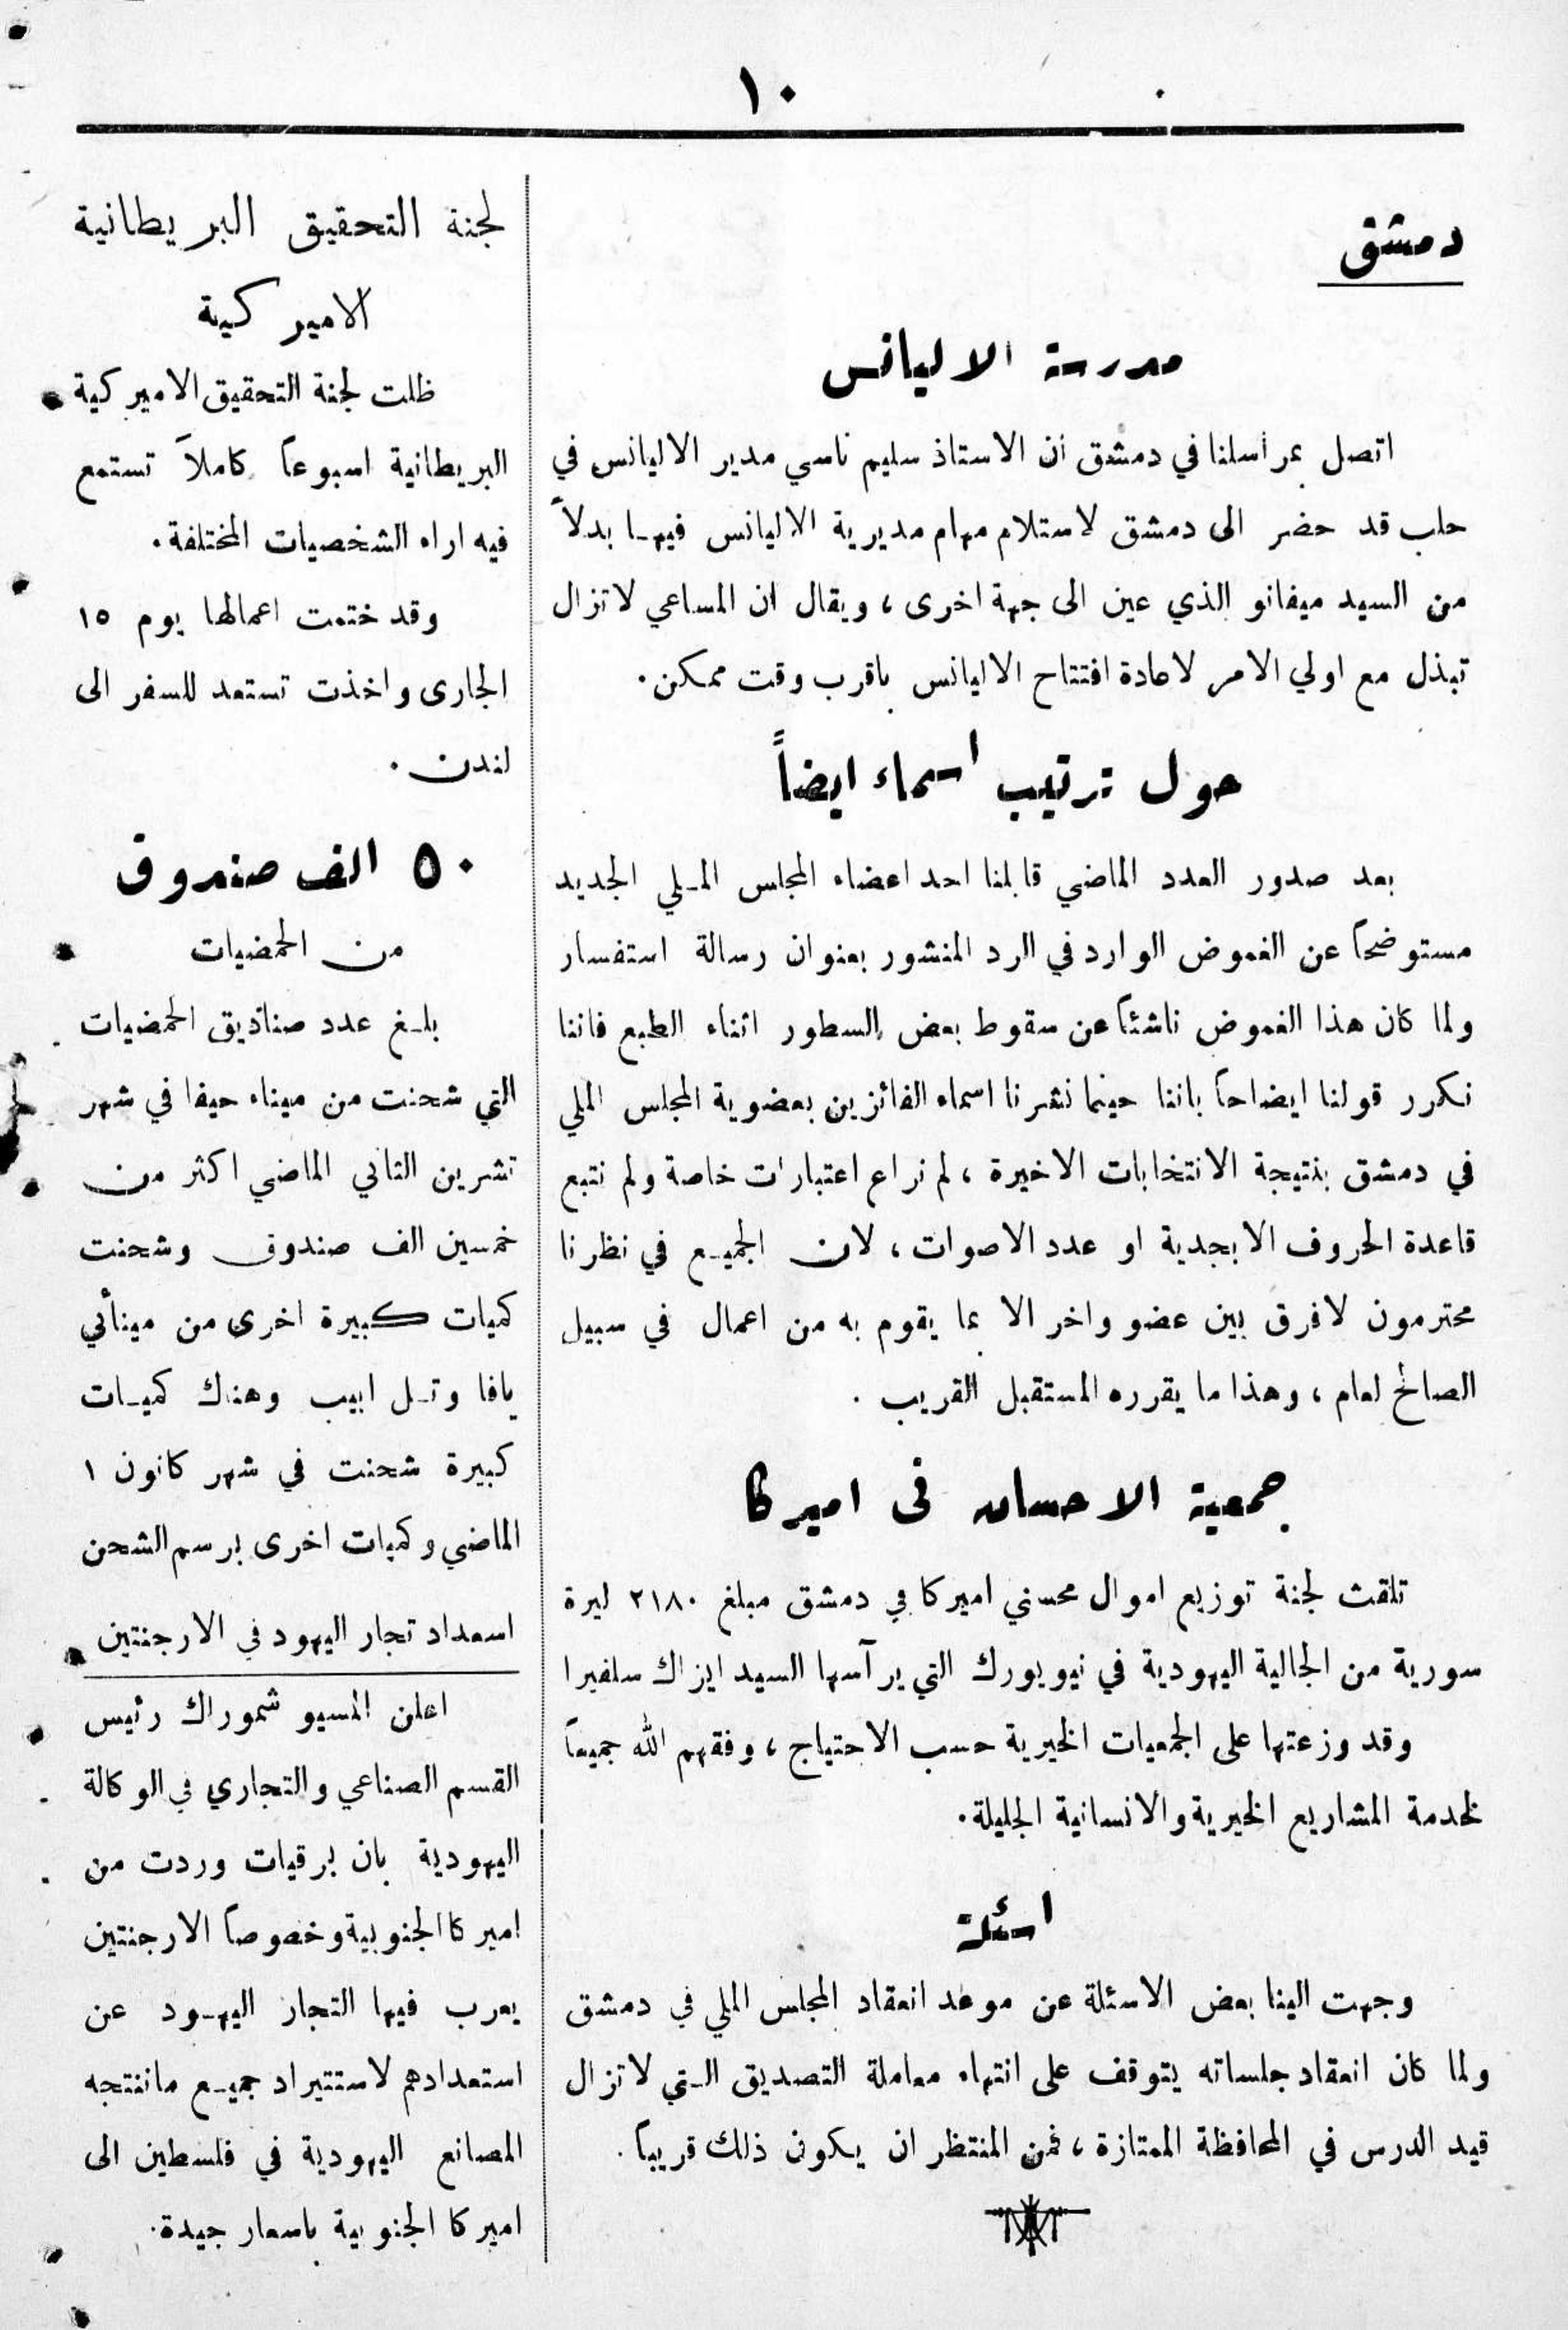 ١٠
دمشق
مدرسة الاليانس
اتصل بمراسلنا في دمشق ان الاستاذ سليم ناسي مدير الاليانس في
حلب قد حضر الى دمشق لاستلام مهام مديرية الاليانس فيها بدلاً
من السيد ميفانو الذي عين الى جهة اخرى ، ويقال ان المساعي لاتزال
تبذل مع اولي الامر لاعادة افتتاح الاليانس باقرب وقت ممكن.
حول ترتيب اسماء ايضاً
بعد صدور العدد الماضي قابلنا احد اعضاء المجلس الملي الجديد
مستوضحاً عن الغموض الوارد في الرد المنشور بعنوان رسالة استفسار
ولما كان هذا الغموض ناشئاً عن سقوط بعض السطور اثناء الطبع فاننا
نكرر قولنا ايضاحاً باننا حينما نشرنا اسماء الفائزين بعضوية المجلس الملي
في دمشق بنتيجة الانتخابات الاخيرة ، لم نراع اعتبارات خاصة ولم نتبع
قاعدة الحروف الابجدية او عدد الاصوات ، لان الجميع في نظرنا
محترمون لافرق بين عضو واخر الا بما يقوم به من اعمال في سبيل
الصالح لعام ، وهذا ما يقرره المستقبل القريب .
جمعية الاحسان في اميركا
تلقت لجنة توزيع اموال محسني اميركا في دمشق مبلغ ٢١٨٠ ليرة
سورية من الجالية اليهودية في نيويورك التي يرآسها السيد ايزاك سلفيرا
وقد وزعتها على الجمعيات الخيرية حسب الاحتياج ، وفقهم الله جميعاً
لخدمة المشاريع الخيرية والانسانية الجليلة.
اسئلة
وجهت الينا بعض الاسئلة عن موعد انعقاد المجلس الملي في دمشق
ولما كان انعقاد جلساته يتوقف على انتهاء معاملة التصديق التي لاتزال
قيد الدرس في المحافظة الممتازة ، فمن المنتظر ان يكون ذلك قريباً .
لجنة التحقيق البريطانية
الاميركية
ظلت لجنة التحقيق الاميركية
البريطانية اسبوعاً كاملاً تستمع
فيه اراء الشخصيات المختلفة.
وقد ختمت اعمالها يوم ١٥
الجارى واخذت تستعد للسفر الى
لندن .
٥٠ الف صندوق
من الحمضيات
بلغ عدد صناديق الحمضيات
التي شحنت من ميناء حيفا في شهر
تشرين الثاني الماضي اكثر من
خمسين الف صندوق وشحنت
كميات كبيرة اخرى من مينائي
يافا وتل ابيب وهناك كميات
كبيرة شحنت في شهر كانون ١
الماضي وكميات اخرى برسم الشحن
اسعداد تجار اليهود في الارجنتين
اعلن المسيو شموراك رئيس
القسم الصناعي والتجاري في الوكالة
اليهودية بان برقيات وردت من
اميركا الجنوبية وخصوصاً الارجنتين
يعرب فيها التجار اليهود عن
استعدادهم لاستتيراد جميع ماتنتجه
المصانع اليهودية في فلسطين الى
اميركا الجنوبية باسعار جيدة.